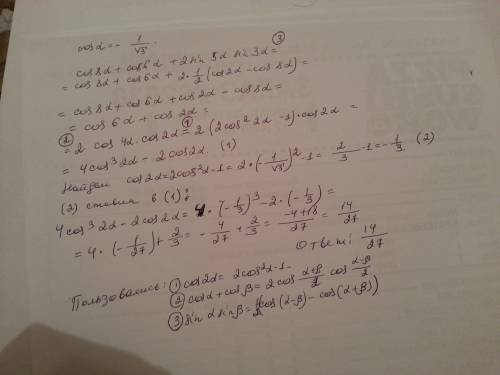 cosα = - 1/√3.
③
cos8α + cos6α + 2sin5α sin3α =
= cos8α + cos6α + 2·1/2(cos2α - cos8α) =
= cos8α + cos6α + cos2α - cos8α =
= cos6α + cos2α =
② ①
= 2 cos4α·cos2α = 2(2cos²2α - 1)·cos2α =
= 4cos³2α - 2cos2α. (1)
Найдем cos2α = 2cos²α - 1 = 2·(-1/√3)² - 1 = 2/3 - 1 = -1/3. (2)
(2) ставим в (1):
4cos³2α - 2cos2α = 4·(-1/3)³ - 2·(-1/3) =
= 4·(-1/27) + 2/3 = -4/27 + 2/3 = (-4+18)/27 = 14/27
Ответ: 14/27
Пользовались: ① cos2α = 2cos²α - 1 -
② cosα + cosβ = 2cos (α+β)/2 cos (α-β)/2
③ sinα sinβ = 1/2 (cos(α-β) - cos(α+β))